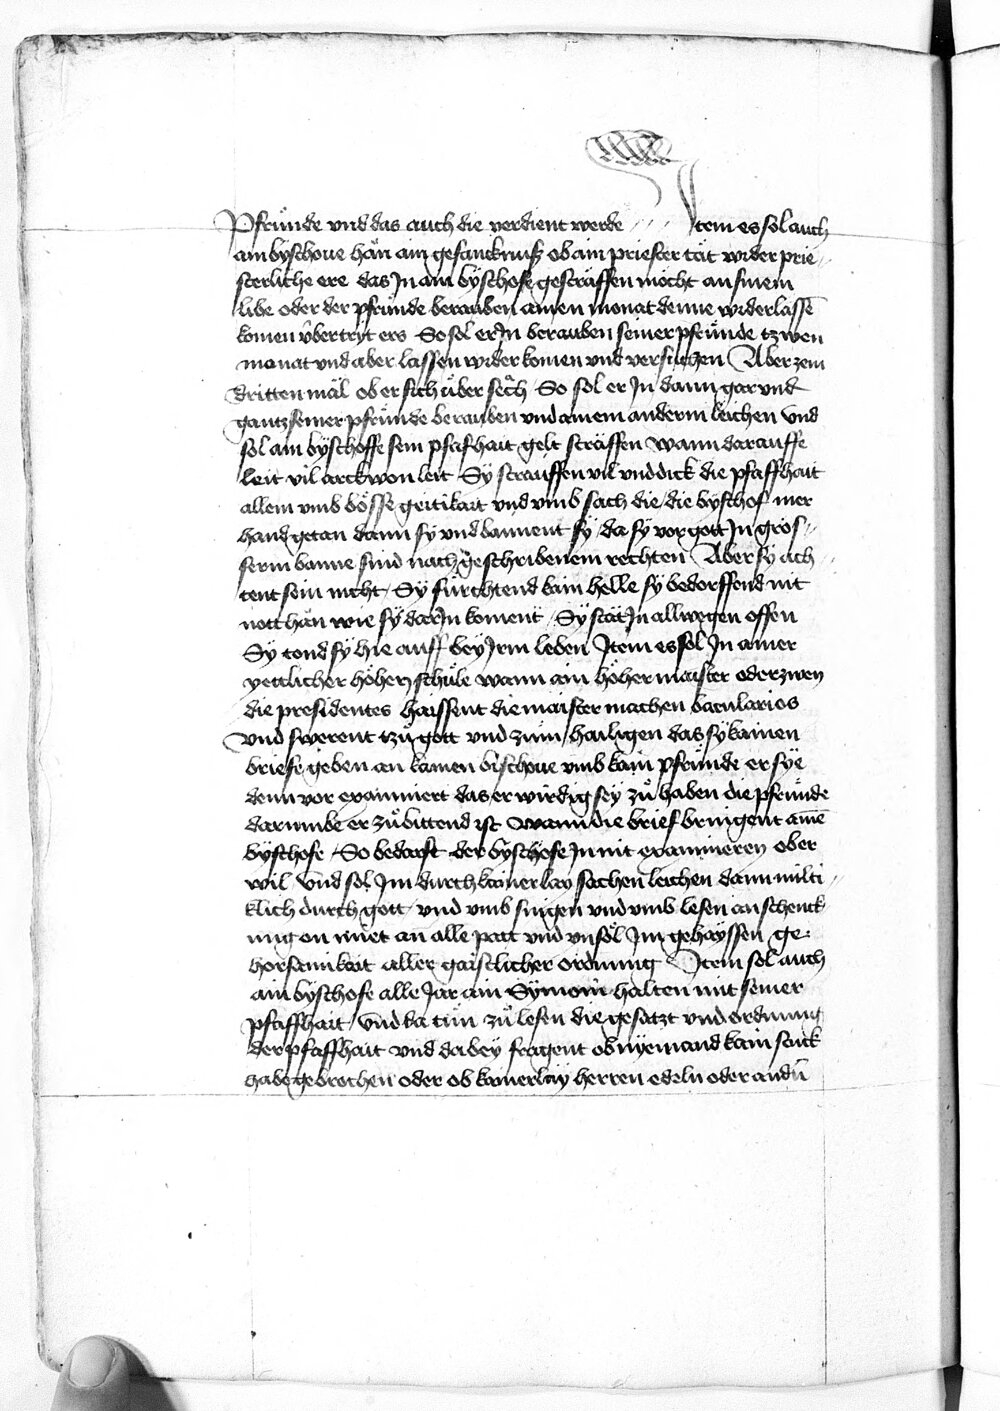 Pfrůnde vnd das auch die verdient werde Item es sol auch
ain byschoue hän ain gefancknuß ob ain priester tät wider prie
sterliche ere das In ain byschofe gesträffen möcht an sinem
libe oder der pfrunde berauben ainen monat denne widerlassē
komen v̂bertryt ers So sol er In berauben seiner pfrůnde tzwen
monat vnd aber lassen wider komen vnd versuchen Aber zem
dritten mäl ob er sich über sech So sol er In dann gar vnd
gantz seiner pfrůnde berauben vnd ainem anderm leichen Vnd
sol ain byschoffe sein pfafhait gelt sträffen wann darauffe
leit vil arckwon leit Sy strauffen vil vnd dick die pfaffhait
allein vmb bösse geitikait vnd vmb sach die / die byschof mer
hand getan dann sy vnd bannent sy / da sy vor gott In gros
serm banne sind nach geschribenem rechten Aber sy ach
tent sein nicht / Sy fürchtend kain helle sy bedorffend nit
nott hän wie sy dar In koment / Sy stät In allwegen offen
Sy tond sy hie auff bey Irm leben Item es sol In ainer
yettlicher höhen schůle wann ain höher maister oder zwen
die presidentes haissent die maister machen bacularios
Vnd swerent tzů gott vnd zům hailigen das sy kainen
briefe geben an kainen bischoue vmb kain pfrůnde er sye
denn vor examiniert das er wirdig sey zů haben die pfrůnde
darumbe er zů bittend ist Wann die brief bringent ainē
byschofe / So bedarft der byschofe In nit examineren ober
wil Vnd sol Im durch kainerlay sachen leichen dann milti
klich durch gott / vnd vmb singen vnd vmb lesen an schenck
ung on miet an alle patt vnd vnsöl Im gehayssen ge
horsamkait aller gaistlicher ordnung Item sol auch
ain byschofe alle Jar ain Symom halten mit seiner
pfaffhait / vnd da tůn zů lesen die gesatzt vnd ordnung
der pfaffhait vnd dabey fragent ob nyemand kain stuck
habe gebrochen oder ob kainerlay herren edeln oder andn̄